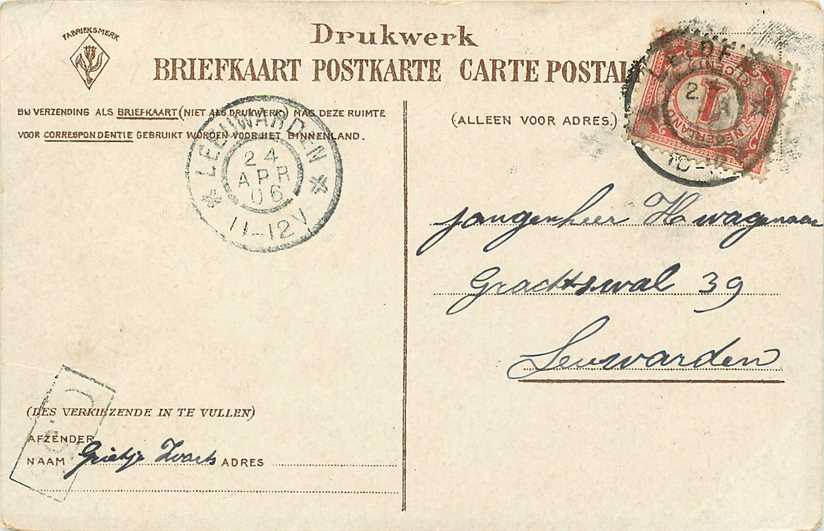 FABRIEKSMERK
Drukwerk
BRIEFKAART POSTKARTE CARTE POSTAL
BIJ VERZENDING ALS BRIEFKAART (NIET ALS DRUKWERK) MAG DEZE RUIMTE
VOOR CORRESPONDENTIE GEBRUIKT WORDEN VOOR HET BINNENLAND.
(ALLEEN VOOR ADRES.)
LEEUWARDEN
24
APR
06
11-12V
LEIDEN
1
NEDERLAND
jongenheer H Wagenaar
Grachtswal 39
Leuwarden
(DES VERKIEZENDE IN TE VULLEN)
AFZENDER
NAAM Grietje Zwart ADRES